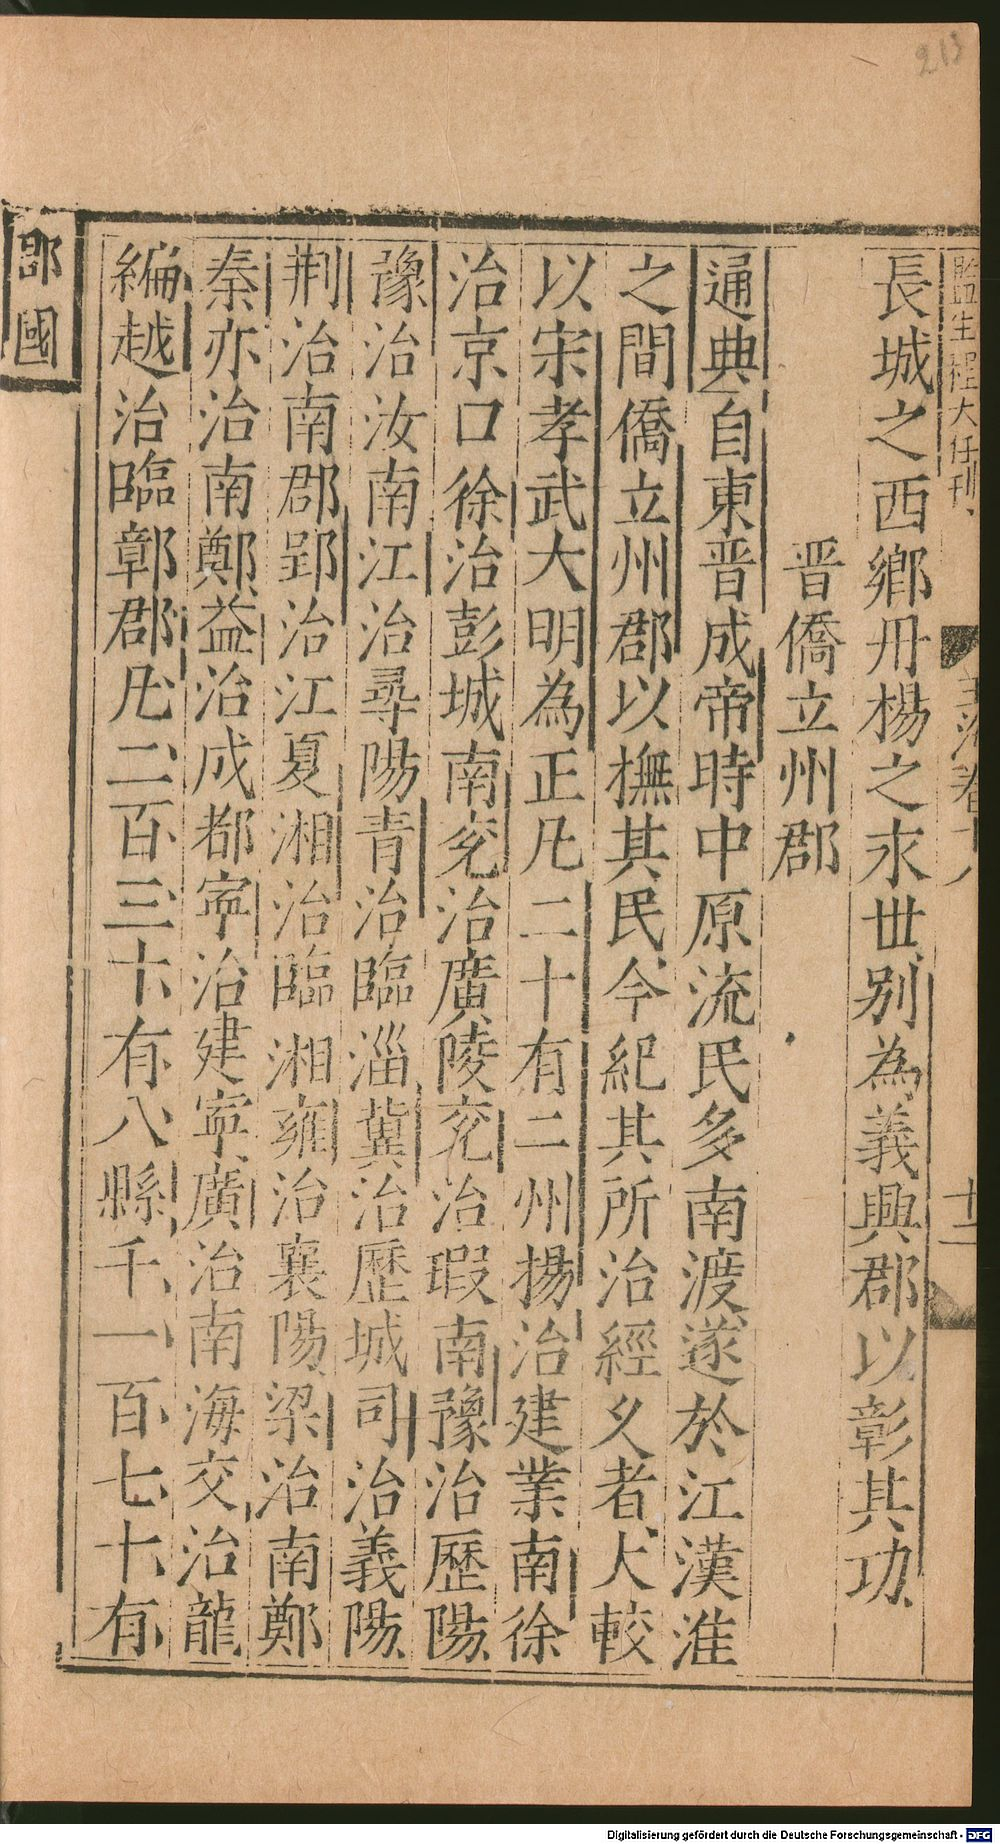 213
監生程大任刊
玉海卷十八
十二
長城之西鄉丹楊之永世別為義興郡以彰其功
晋僑立州郡
通典自東晋成帝時中原流民多南渡遂於江漢淮
之間僑立州郡以撫其民今紀其所治經久者大較
以宋孝武大明為正凡二十有二州揚治建業南徐
治京口徐治彭城南兖治廣陵兖治瑕南豫治歷陽
豫治汝南江治尋陽青治臨淄冀治歷城司治義陽
荆治南郡郢治江夏湘治臨湘雍治襄陽梁治南鄭
秦亦治南鄭益治成都寧治建寧廣治南海交治龍
編越治臨鄣郡凡二百三十有八縣千一百七十有
郡國
Digitalisierung gefördert durch die Deutsche Forschungsgemeinschaft - DFG